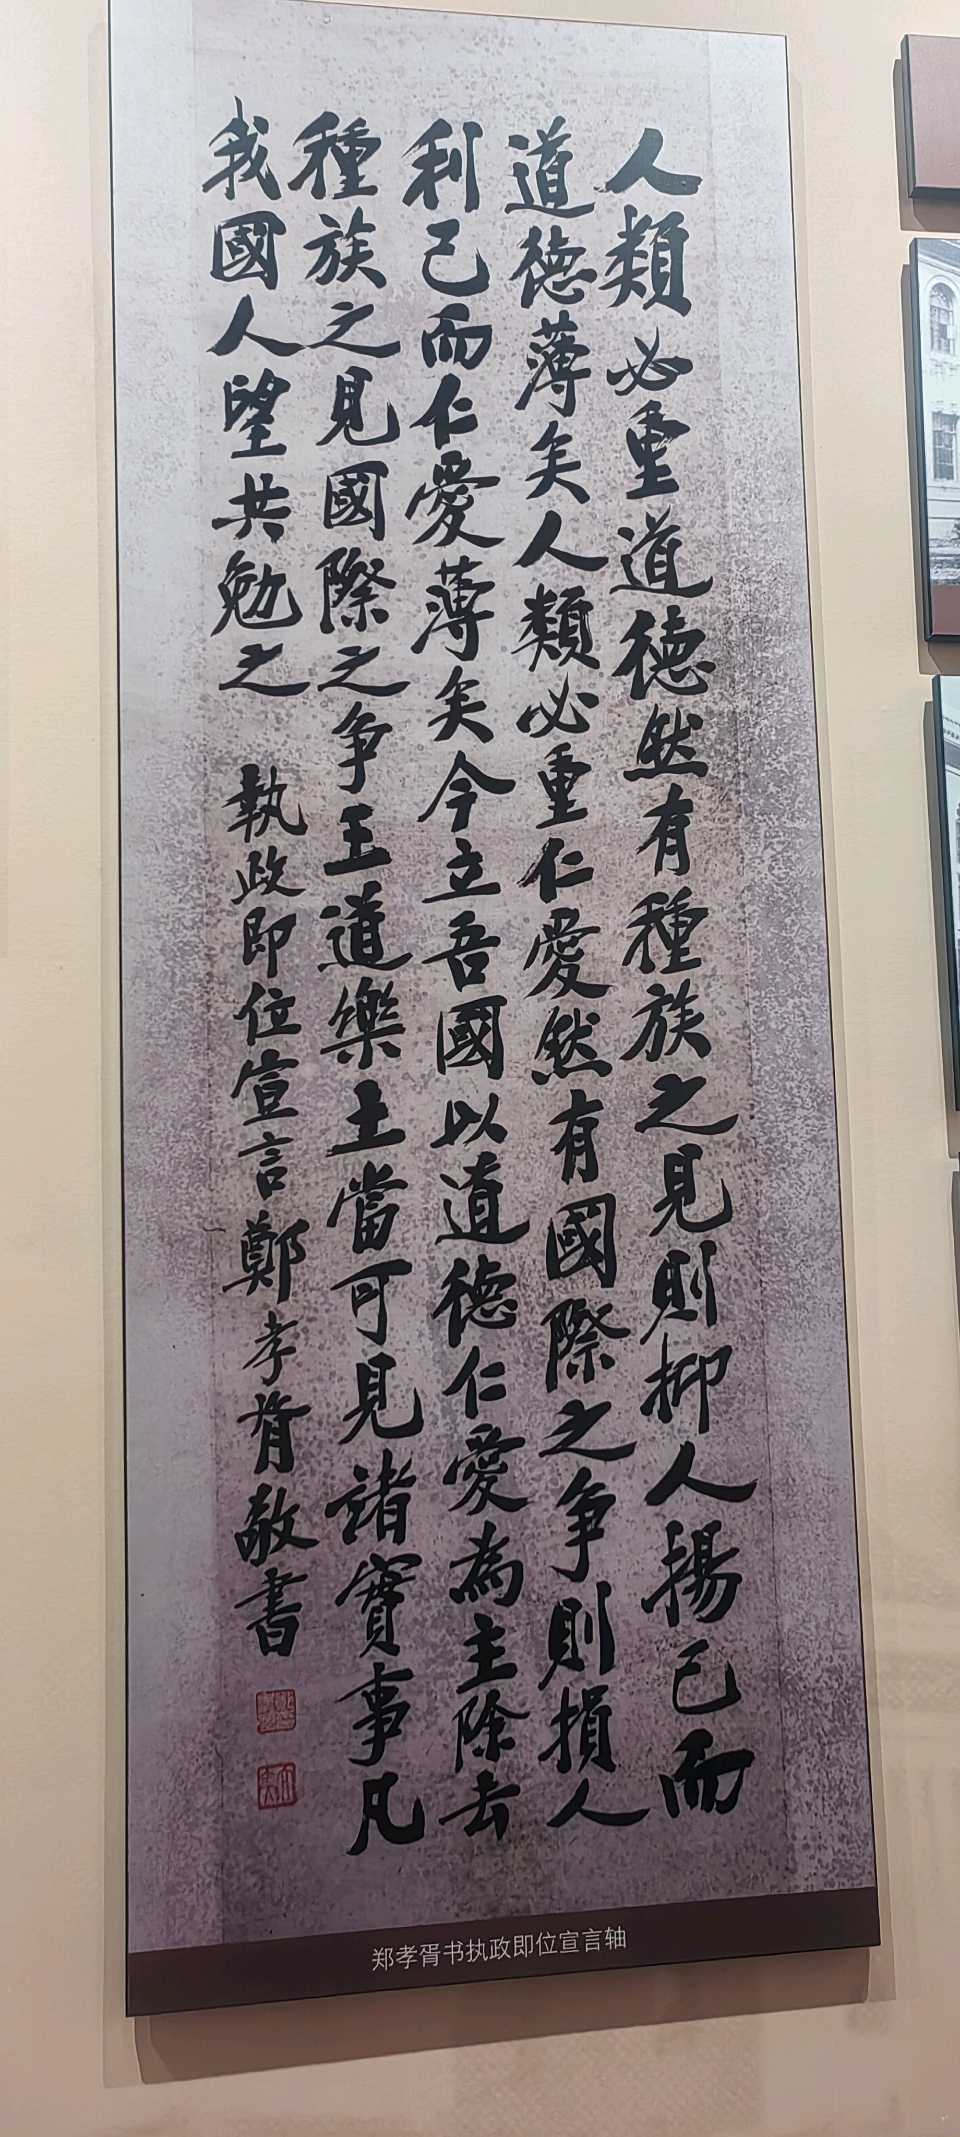 人類必重道德然有種族之見則抑人揚己而
道德薄矣人類必重仁愛然有國際之争則損人
利己而仁愛薄矣今立吾國以道德仁愛為主除去
種族之見國際之争王道樂土當可見諸實事凡
我國人望共勉之 執政即位宣言鄭孝胥敬書
郑孝胥书执政即位宣言轴